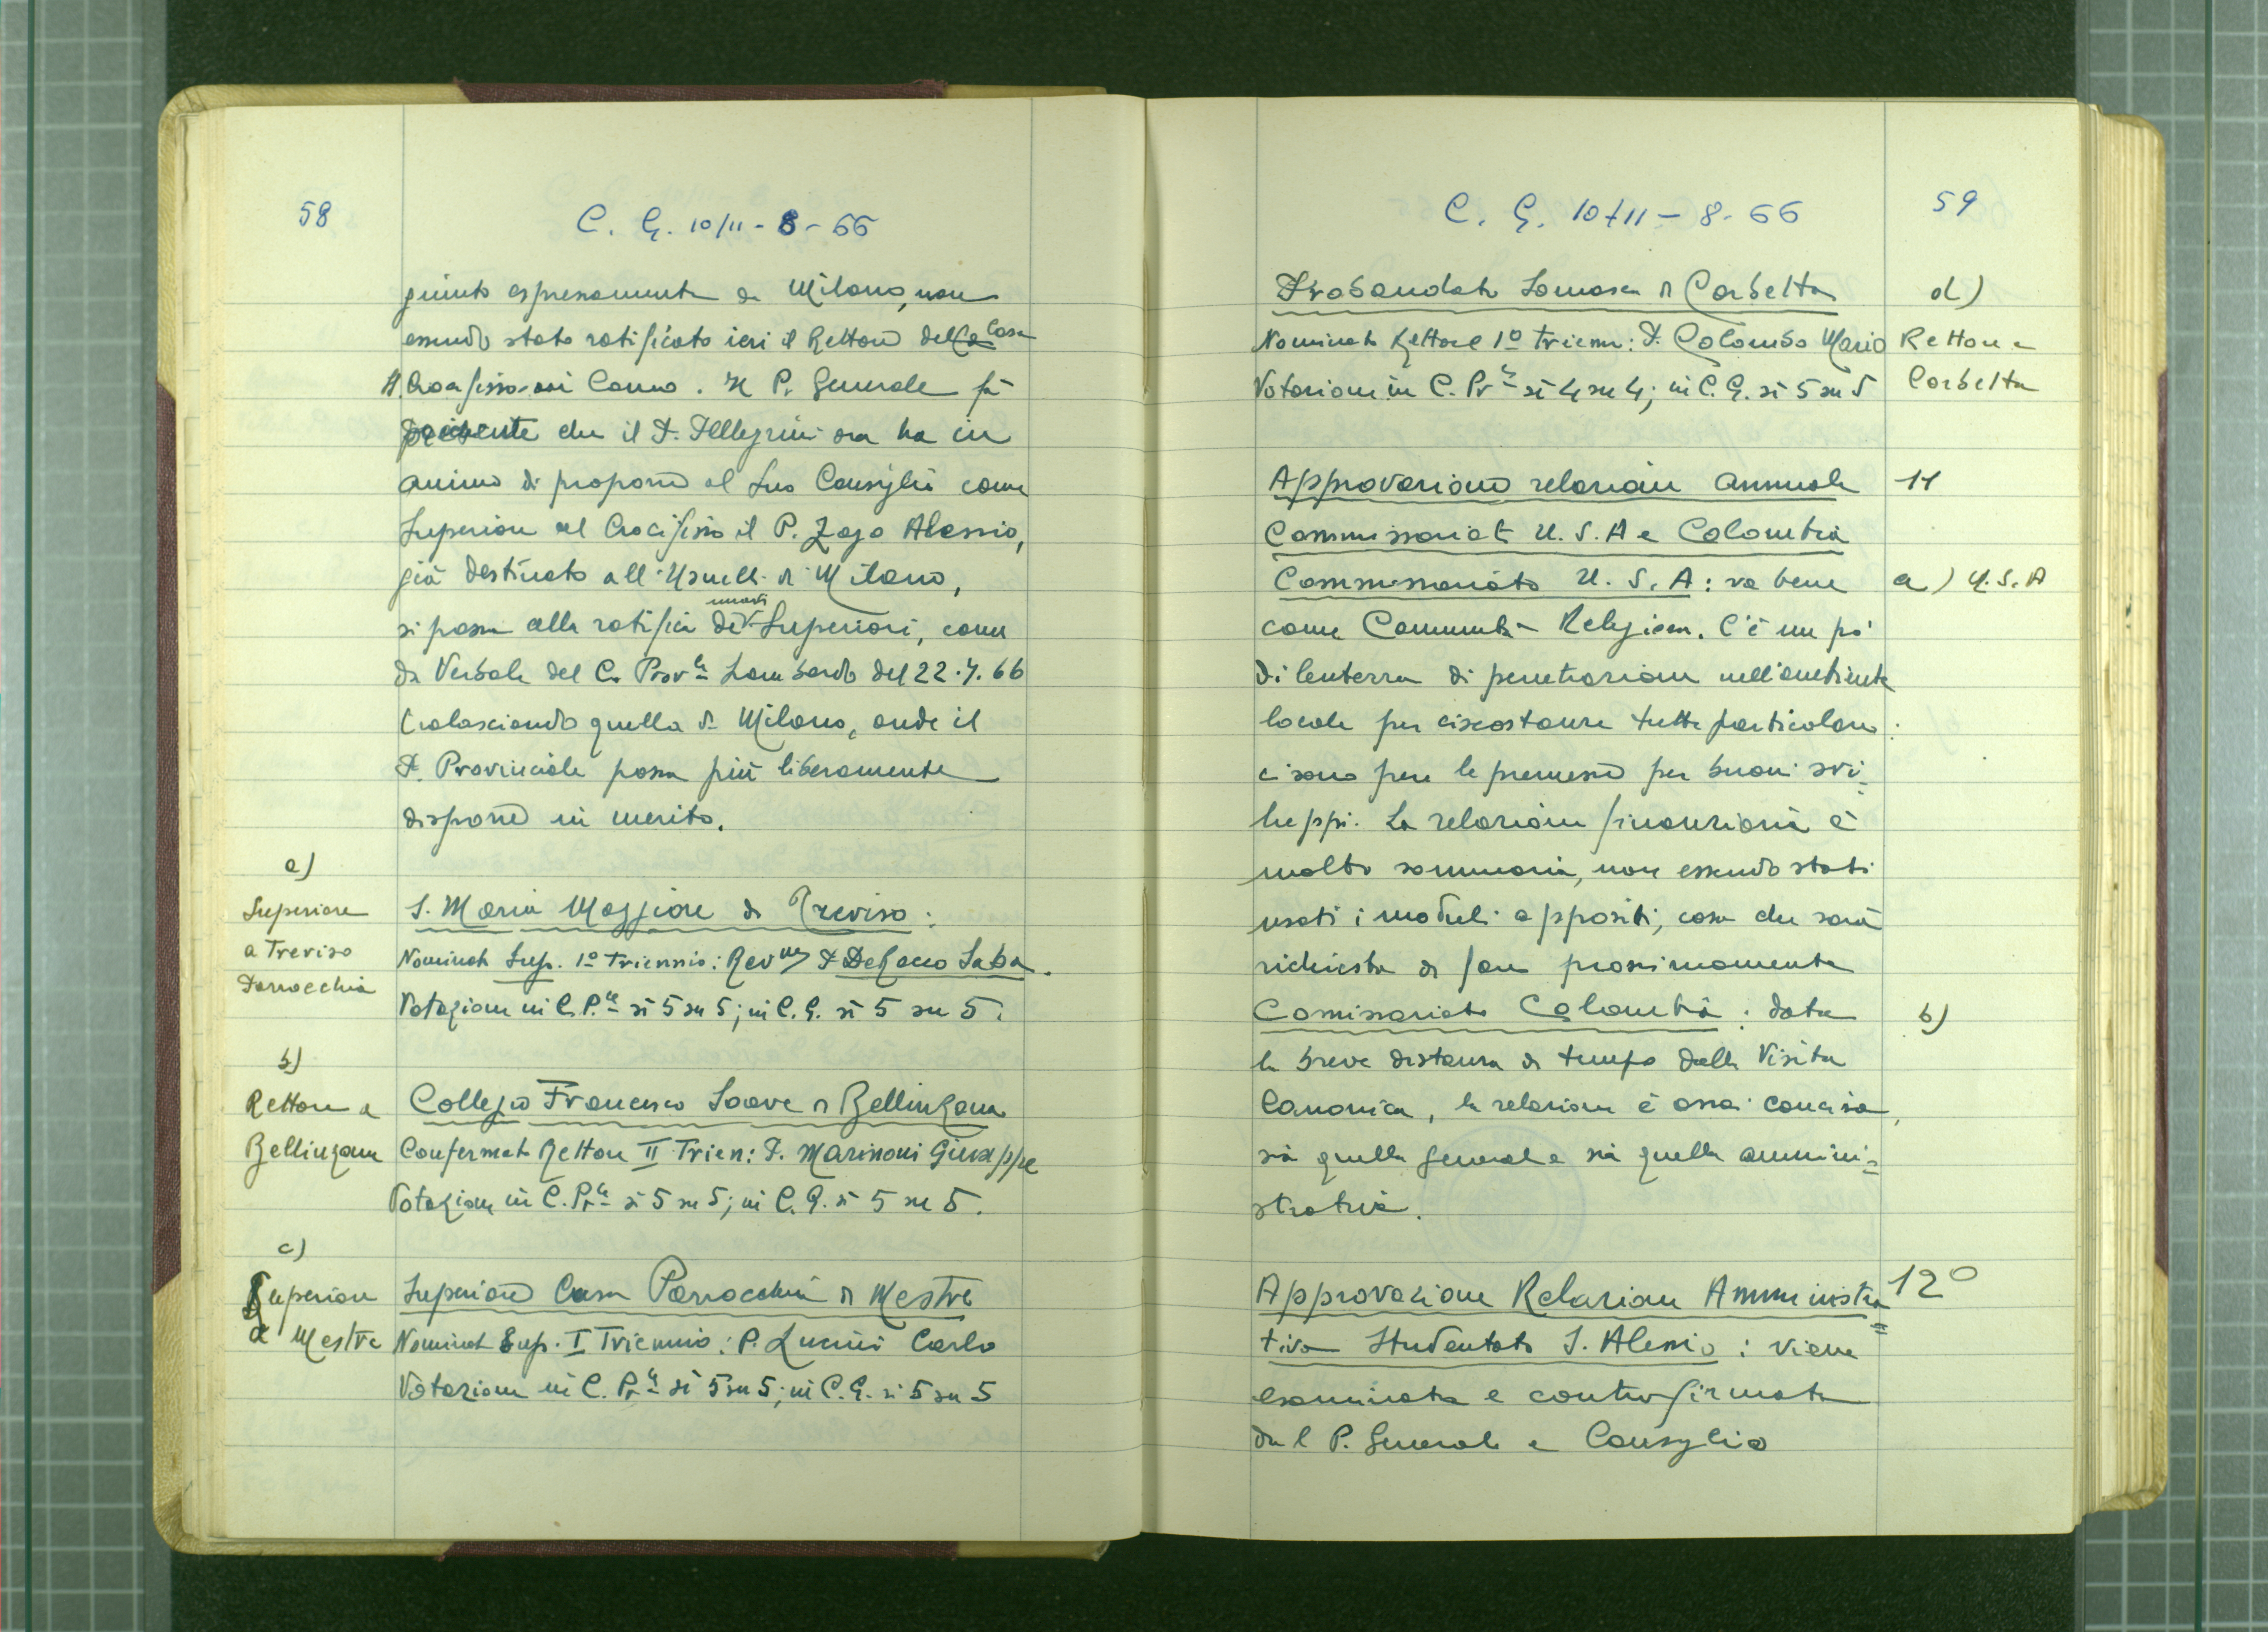 58
C. G. 10/11-8-66
giunto espressamente da Milano, non
essendo stato ratificato ieri il Rettore della Casa
SS. Crocifisso di Como. Il P. Generale fa
presente che il P. Pellegrini ora ha in
animo di proporre al suo Consiglio come
Superiore al Crocifisso il P. Zago Alessio,
già destinato all'Usuelli di Milano,
si passa alla ratifica dei nuovi Superiori, come
da Verbale del C. Prov.le Lombardo del 22.7.66
tralasciando quella di Milano, onde il
P. Provinciale possa più liberamente
disporre in merito.
a)
Superiore
a Treviso
Parrocchia
S. Maria Maggiore di Treviso:
Nominato Sup. 1º triennio: Rev.mo P. De Rocco Saba.
Votazione in C. P.le sì 5 su 5; in C. G. sì 5 su 5.
b)
Rettore a
Bellinzona
Collegio Francesco Soave di Bellinzona
Confermato Rettore II Trien: P. Marinoni Giuseppe
Votazione in C. Pr.le sì 5 su 5; in C. G. sì 5 su 5.
c)
Superiore
a Mestre
Superiore Casa Parrocchia di Mestre
Nominato Sup. I Triennio: P. Lucini Carlo
Votazione in C. Pr.le sì 5 su 5; in C. G. sì 5 su 5
C. G. 10+11-8-66
59
Probandato Somasco di Corbetta
d)
Nominato Rettore 1º trienn: P. Colombo Mario
Rettore a
Votazione in C. Pr.le sì 4 su 4; in C. G. sì 5 su 5
Corbetta
Approvazione relazione annuale
11
Commissariati U.S.A e Colombia
Commissariato U.S.A: va bene
a) U.S.A
come Comunità Religiosa. C'è un pò
di lentezza di penetrazione nell'ambiente
locale per circostanze tutte particolari:
ci sono pure le premesse per buoni svi-
luppi. La relazione finanziaria è
molto sommaria, non essendo stati
usati i moduli appositi, cosa che sarà
richiesta di fare prossimamente
Comissariato Colombia: data
b)
la breve distanza di tempo dalla Visita
Canonica, la relazione è assai concisa,
sia quella generale sia quella ammini=
strativa.
Approvazione Relazione Amministra=
12º
tiva Studentato S. Alessio: viene
esaminata e controfirmata
dal P. Generale e Consiglio